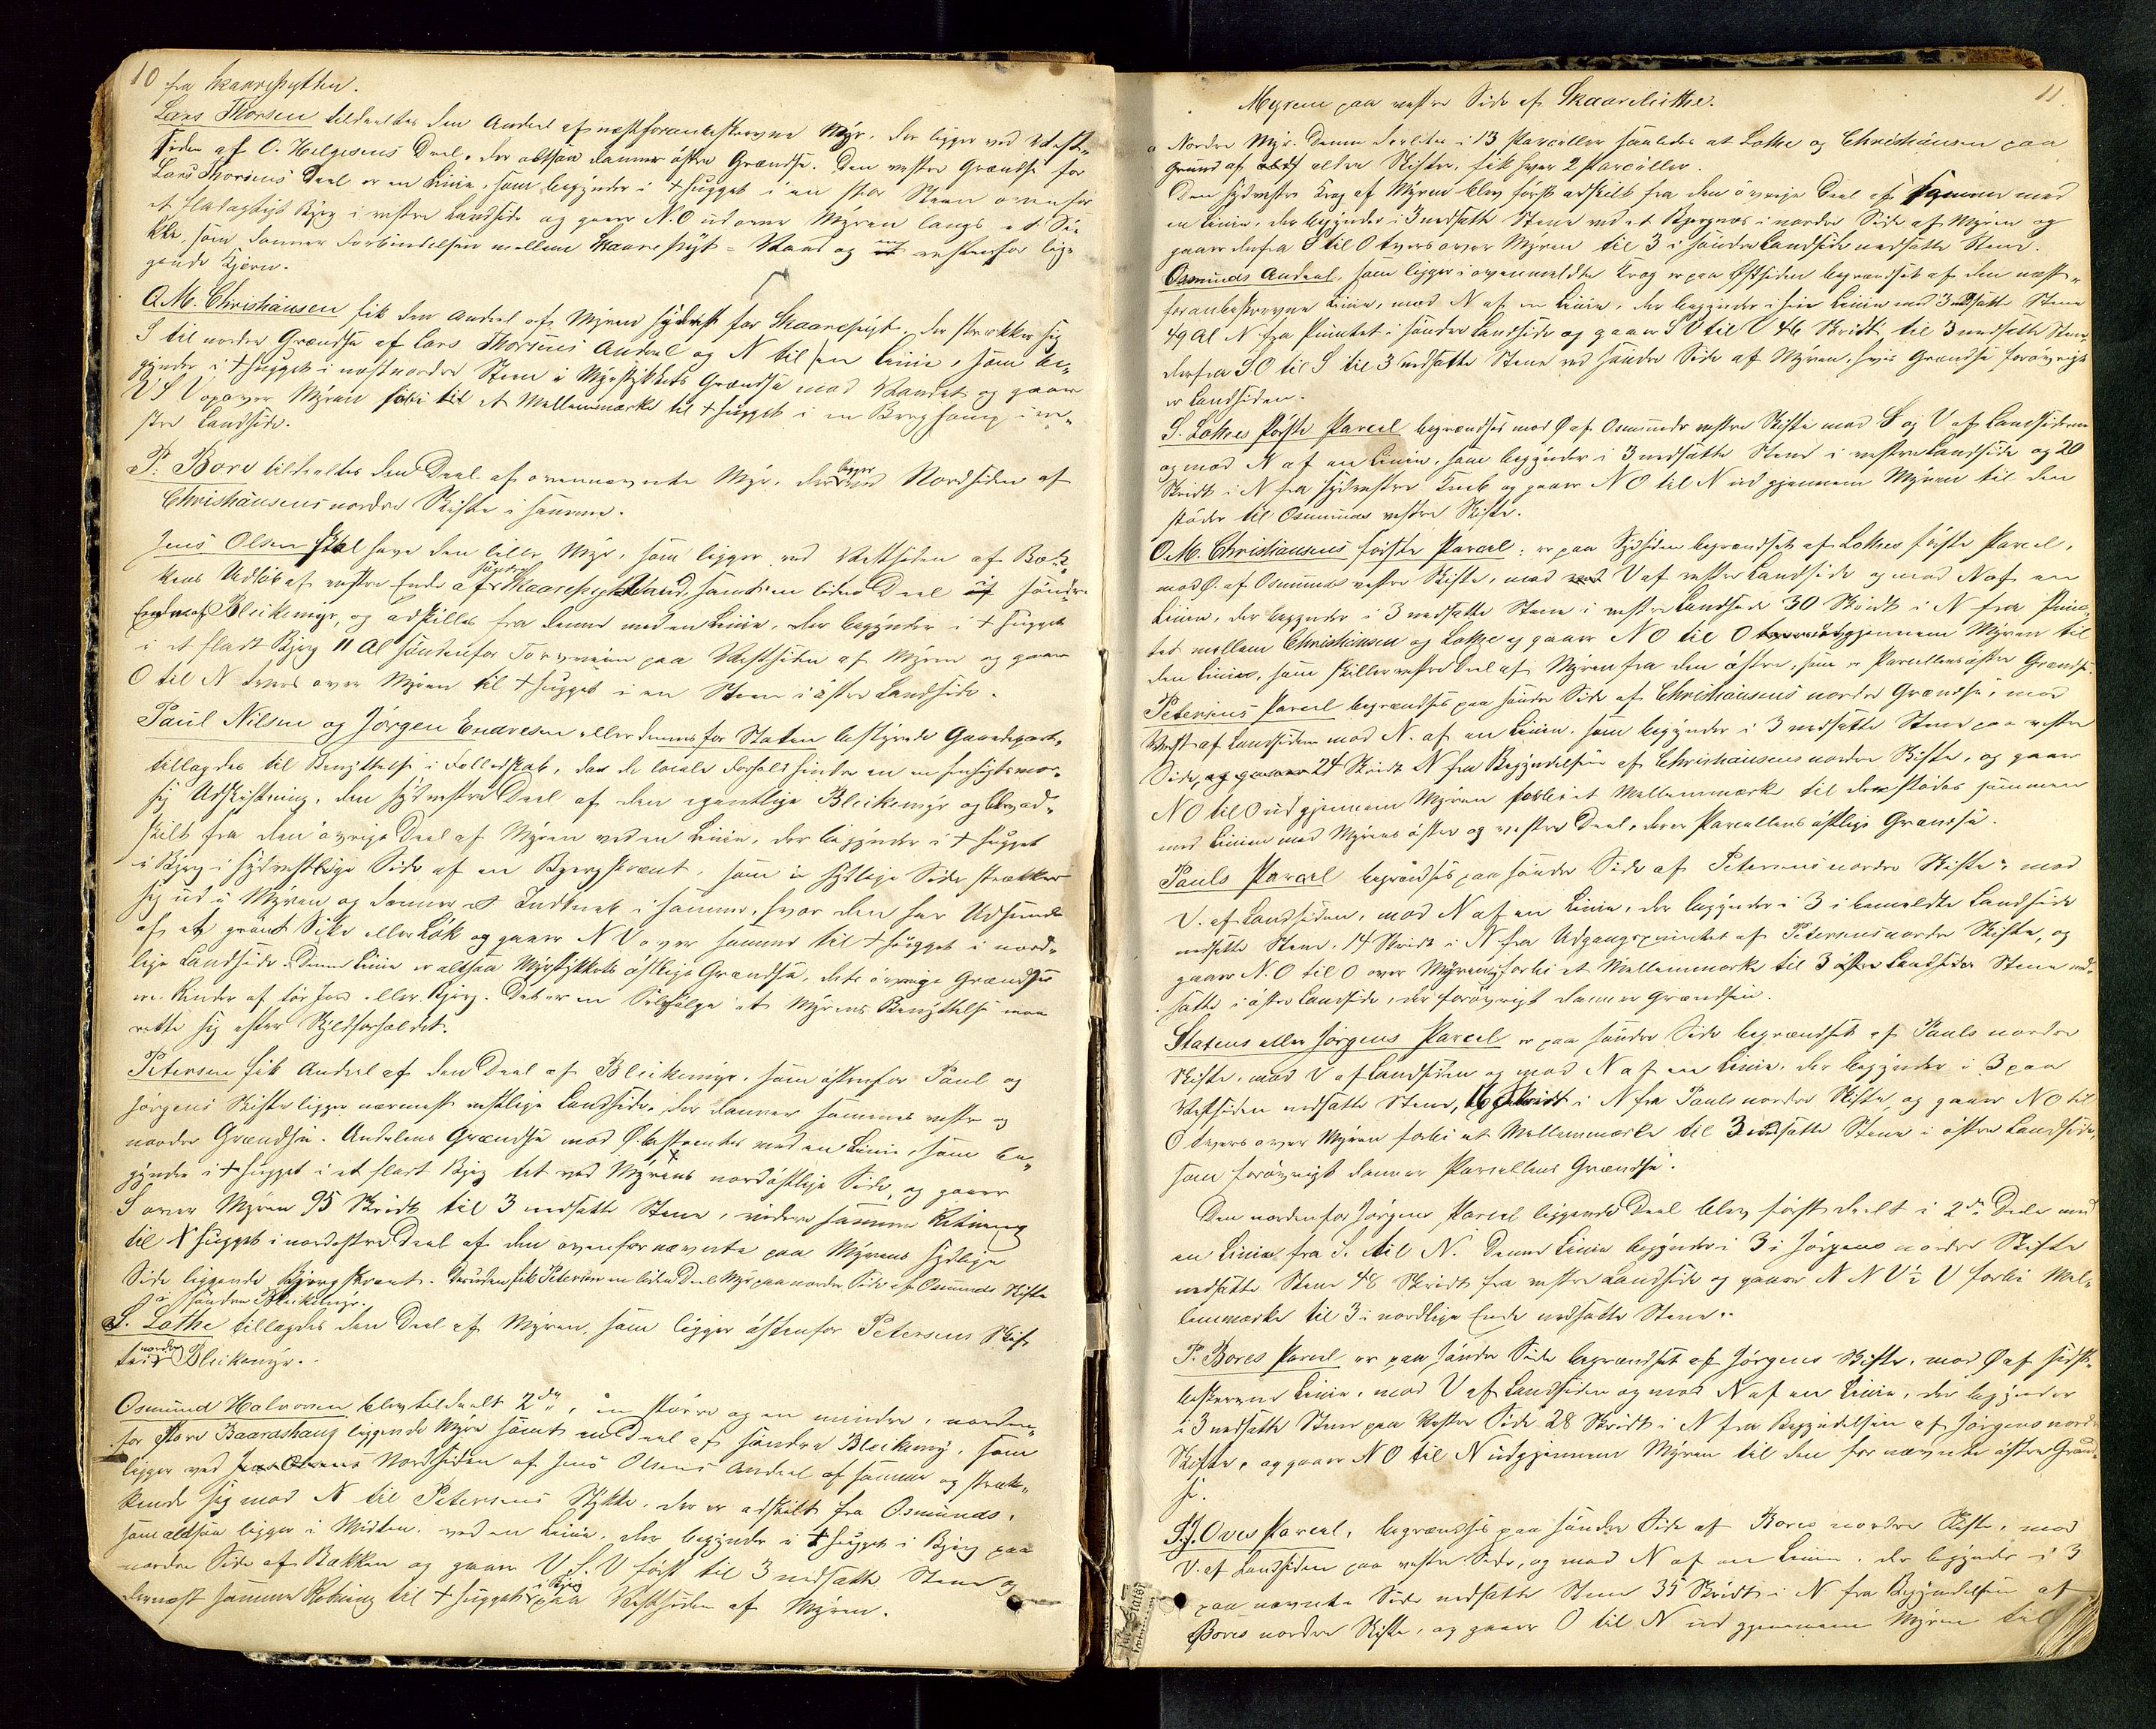 10
fra Skaarespytten.
Lars Thorsen tildeeltes den Andeel af næstforanbeskrevne Myr, der ligger ved Vest-
siden af O. Helgesens Deel, der altsaa danner østre Grændse. Den vestre Grændse for
Lars Thorsens Deel er en Linie, som begynder i + hugget i en stor Steen ovenfor
et fladagtigt Bjerg i vestre Landside og gaaer N.O ud over Myren langs et Si-
kke, som danner Forbindelsen mellem Skaarespyt-Vand og et vestenfor lig-
gende Kjern.
O. M. Christiansen fik den Andeel af Myren sydvest for Skaarespyt, der strækker sig
S til nordre Grændse af Lars Thorsens Andeel og N til en Linie, som be-
gynder i + hugget i næstnordre Steen i Myrstykkets Grændse mod Vandet og gaaer
V S V op over Myren forbi et Mellemmærke til + hugget i en Bergham i ve-
stre Landside.
P. Bore tildeeltes den Deel af ovennævnte Myr, der ligger ved Nordsiden af
Christiansens nordre Skifte i samme.
Jens Olsen skal have den lille Myr, som ligger ved Vestsiden af Bæk-
kens Udløb af vestre Ende af søndre Skaarespyt Vand, samt en liden Deel af søndre
Ende af Bleikemyr, og adskilles fra denne med en Linie, der begynder i + hugget
i et fladt Bjerg 11 Al søndenfor Torvmuren paa Vestsiden af Myren og gaaer
O til N tvers over Myren til + hugget i en Steen i østre Landside.
Paul Nilsen og Jørgen Endresen eller denne for Staten bestyrede Gaardepart,
tillagdes til Benyttelse i Fælledskab, da de locale Forhold hindre en en hensigtsmæs-
sig Udskiftning, den sydvestre Deel af den egentlige Bleikemyr og blev ad-
skilt fra den øvrige Deel af Myren ved en Linie, der begynder i + hugget
i Bjerg i sydvestlige Side af en Bjergskrænt, som i sydlige Side strækker
sig ud i Myren og danner et Indknæk i samme, hvor den har Udspring
af et grønt Sike eller Løk og gaaer N V over samme til + hugget i nord-
lige Landside. Denne Linie er altsaa Myrstykkets østlige Grændse, dets øvrige Grændser
ere Kander af tør Jord eller Bjerg. Det er en Selvfølge at Myrens Benyttelse maa
rette sig efter Skyldforholdet.
Petersen fik Andeel af den Deel af Bleikemyr, som østenfor Paul og
Jørgens Skifte ligger nærmest vestlige Landside, der danner sammes vestre og
nordre Grændse. Andelens Grændse mod Ø. bestemtes ved en Linie, som be-
gynder i + hugget i et fladt Bjerg tet ved Myrens nordøstlige Side, og gaaer
S over Myren 95 Skridt til 3 nedsatte Stene, videre samme Retning
til + hugget i nordøstre Deel af den ovenfor nævnte paa Myrens sydlige
Side liggende Bjergskrænt. Desuden fik Petersen en liden Deel Myr paa nordre Side af Osmunds Skifte
i søndre Bleikemyr.
S. Lothe tillagdes den Deel af Myren, som ligger østenfor Petersens Skif-
te i nordre Bleikemyr.
Osmund Halvorsen blev tildeelt 2de, en større og en mindre, norden-
for store Baardshaug liggende Myre samt en Deel af søndre Bleikemyr, som
ligger ved Nordsiden af Jens Olsens Andeel af samme og stræk-
kende sig mod N til Petersens Stykke, der er adskilt fra Osmunds,
som altsaa ligger i Midten, ved en Linie, der begynder i + hugget i Bjerg paa
nordre Side af Bækken og gaaer V S V først til 3 nedsatte Stene og
dernæst samme Retning til + hugget i Bjerg paa Vestsiden af Myren.
11
Myrene paa vestre Side af Skaarekirke.
a Nordre Myr. Denne deeltes i 13 Parceller saaledes at Lothe og Christiansen paa
Grund af ældre Skifter, fik hver 2 Parceller.
Den sydvestre Krog af Myren blev først adskilt fra den øvrige Deel af samme med
en Linie, der begynder i 3 nedsatte Stene ved et Bjergnæs i nordre Side af Myren og
gaaer derfra S til O tvers over Myren til 3 i søndre Landside nedsatte Stene.
Osmunds Andeel, som ligger i ovenmeldte Krog er paa Østsiden begrændset af den næst-
foranbeskrevne Linie, mod N af en Linie, der begynder i hin Linie med 3 nedsatte Stene
49 Al N fra Punctet i søndre Landside og gaaer S V til V 46 Skridt til 3 nedsatte Stene,
derfra S O til S til 3 nedsatte Stene ved søndre Side af Myren, hvis Grændse forøvrigt
er Landsiden.
S. Lothes første Parcel begrændses mod Ø af Osmunds vestre Skifte mod S og V af Landsiderne
og mod N af en Linie, som begynder i 3 nedsatte Stene i vestre Landside og 20
Skridt i N fra sydvestre Knæk og gaaer N O til N ud gjennem Myren til den
støder til Osmunds vestre Skifte.
O. M. Christiansens første Parcel: er paa Sydsiden begrændset af Lothes første Parcel,
mod Ø. af Osmunds vestre Skifte, mod V af vestre Landside og mod N af en
Linie, der begynder i 3 nedsatte Stene i vestre Landside 30 Skridt i N fra Punc-
tet mellem Christiansen og Lothe og gaaer N O til O gjennem Myren til
den Linie, som skiller vestre Deel af Myren fra den østre, som er Parcellens østre Grændse.
Petersens Parcel begrændses paa søndre Side af Christiansens nordre Grændse, mod
Vest af Landsiden mod N. af en Linie, som begynder i 3 nedsatte Stene paa vestre
Side, 24 Skridt N fra Begyndelsen af Christiansens nordre Skifte, og gaaer
N O til O ud gjennem Myren forbi et Mellemmærke til den støder sammen
med Linien mod Myrens østre og vestre Deel, der er Parcellens østlige Grændse.
Pauls Parcel begrændses paa søndre Side af Petersens nordre Skifte, mod
V. af Landsiden, mod N af en Linie, der begynder i 3 i bemeldte Landside
nedsatte Stene, 14 Skridt i N fra Udgangspunctet af Petersens nordre Skifte, og
gaaer N.O til O over Myren, forbi et Mellemmærke til 3 Stene ned-
satte i østre Landside, der forøvrigt danner Grændsen.
Statens eller Jørgens Parcel er paa søndre Side begrændset af Pauls nordre
Skifte, mod V af Landsiden og mod N af en Linie, der begynder i 3 paa
Vestsiden nedsatte Stene, 16 Skridt i N fra Pauls nordre Skifte, og gaaer N O til
O tvers over Myren forbi et Mellemmærke til 3 nedsatte Stene i østre Landside,
som forøvrigt danner Parcellens Grændse.
Den nordenfor Jørgens Parcel liggende Deel blev først deelt i 2de Dele med
en Linie, fra S. til N. Denne Linie begynder i 3 i Jørgens nordre Skifte
nedsatte Stene 48 Skridt fra vestre Landside og gaaer N N V ½ V forbi Mel-
lemmærke til 3 i nordlige Ende nedsatte Stene.
P. Bores Parcel er paa søndre Side begrændset af Jørgens Skifte, mod Ø af sidst-
beskrevne Linie, mod V af Landsiden og mod N af en Linie, der begynder
i 3 nedsatte Stene paa Vestre Side 28 Skridt i N fra Begyndelsen af Jørgens nordre
Skifte, og gaaer N O til N ud gjennem Myren til den før nævnte østre Grænd-
se.
S. J. Oves Parcel, begrændses paa søndre Side af Bores nordre Skifte, mod
V. af Landsiden paa vestre Side, og mod N af en Linie, der begynder i 3
paa nævnte Side nedsatte Stene 35 Skridt i N fra Begyndelsen af
Bores nordre Skifte, og gaaer O til N ud gjennem Myren til